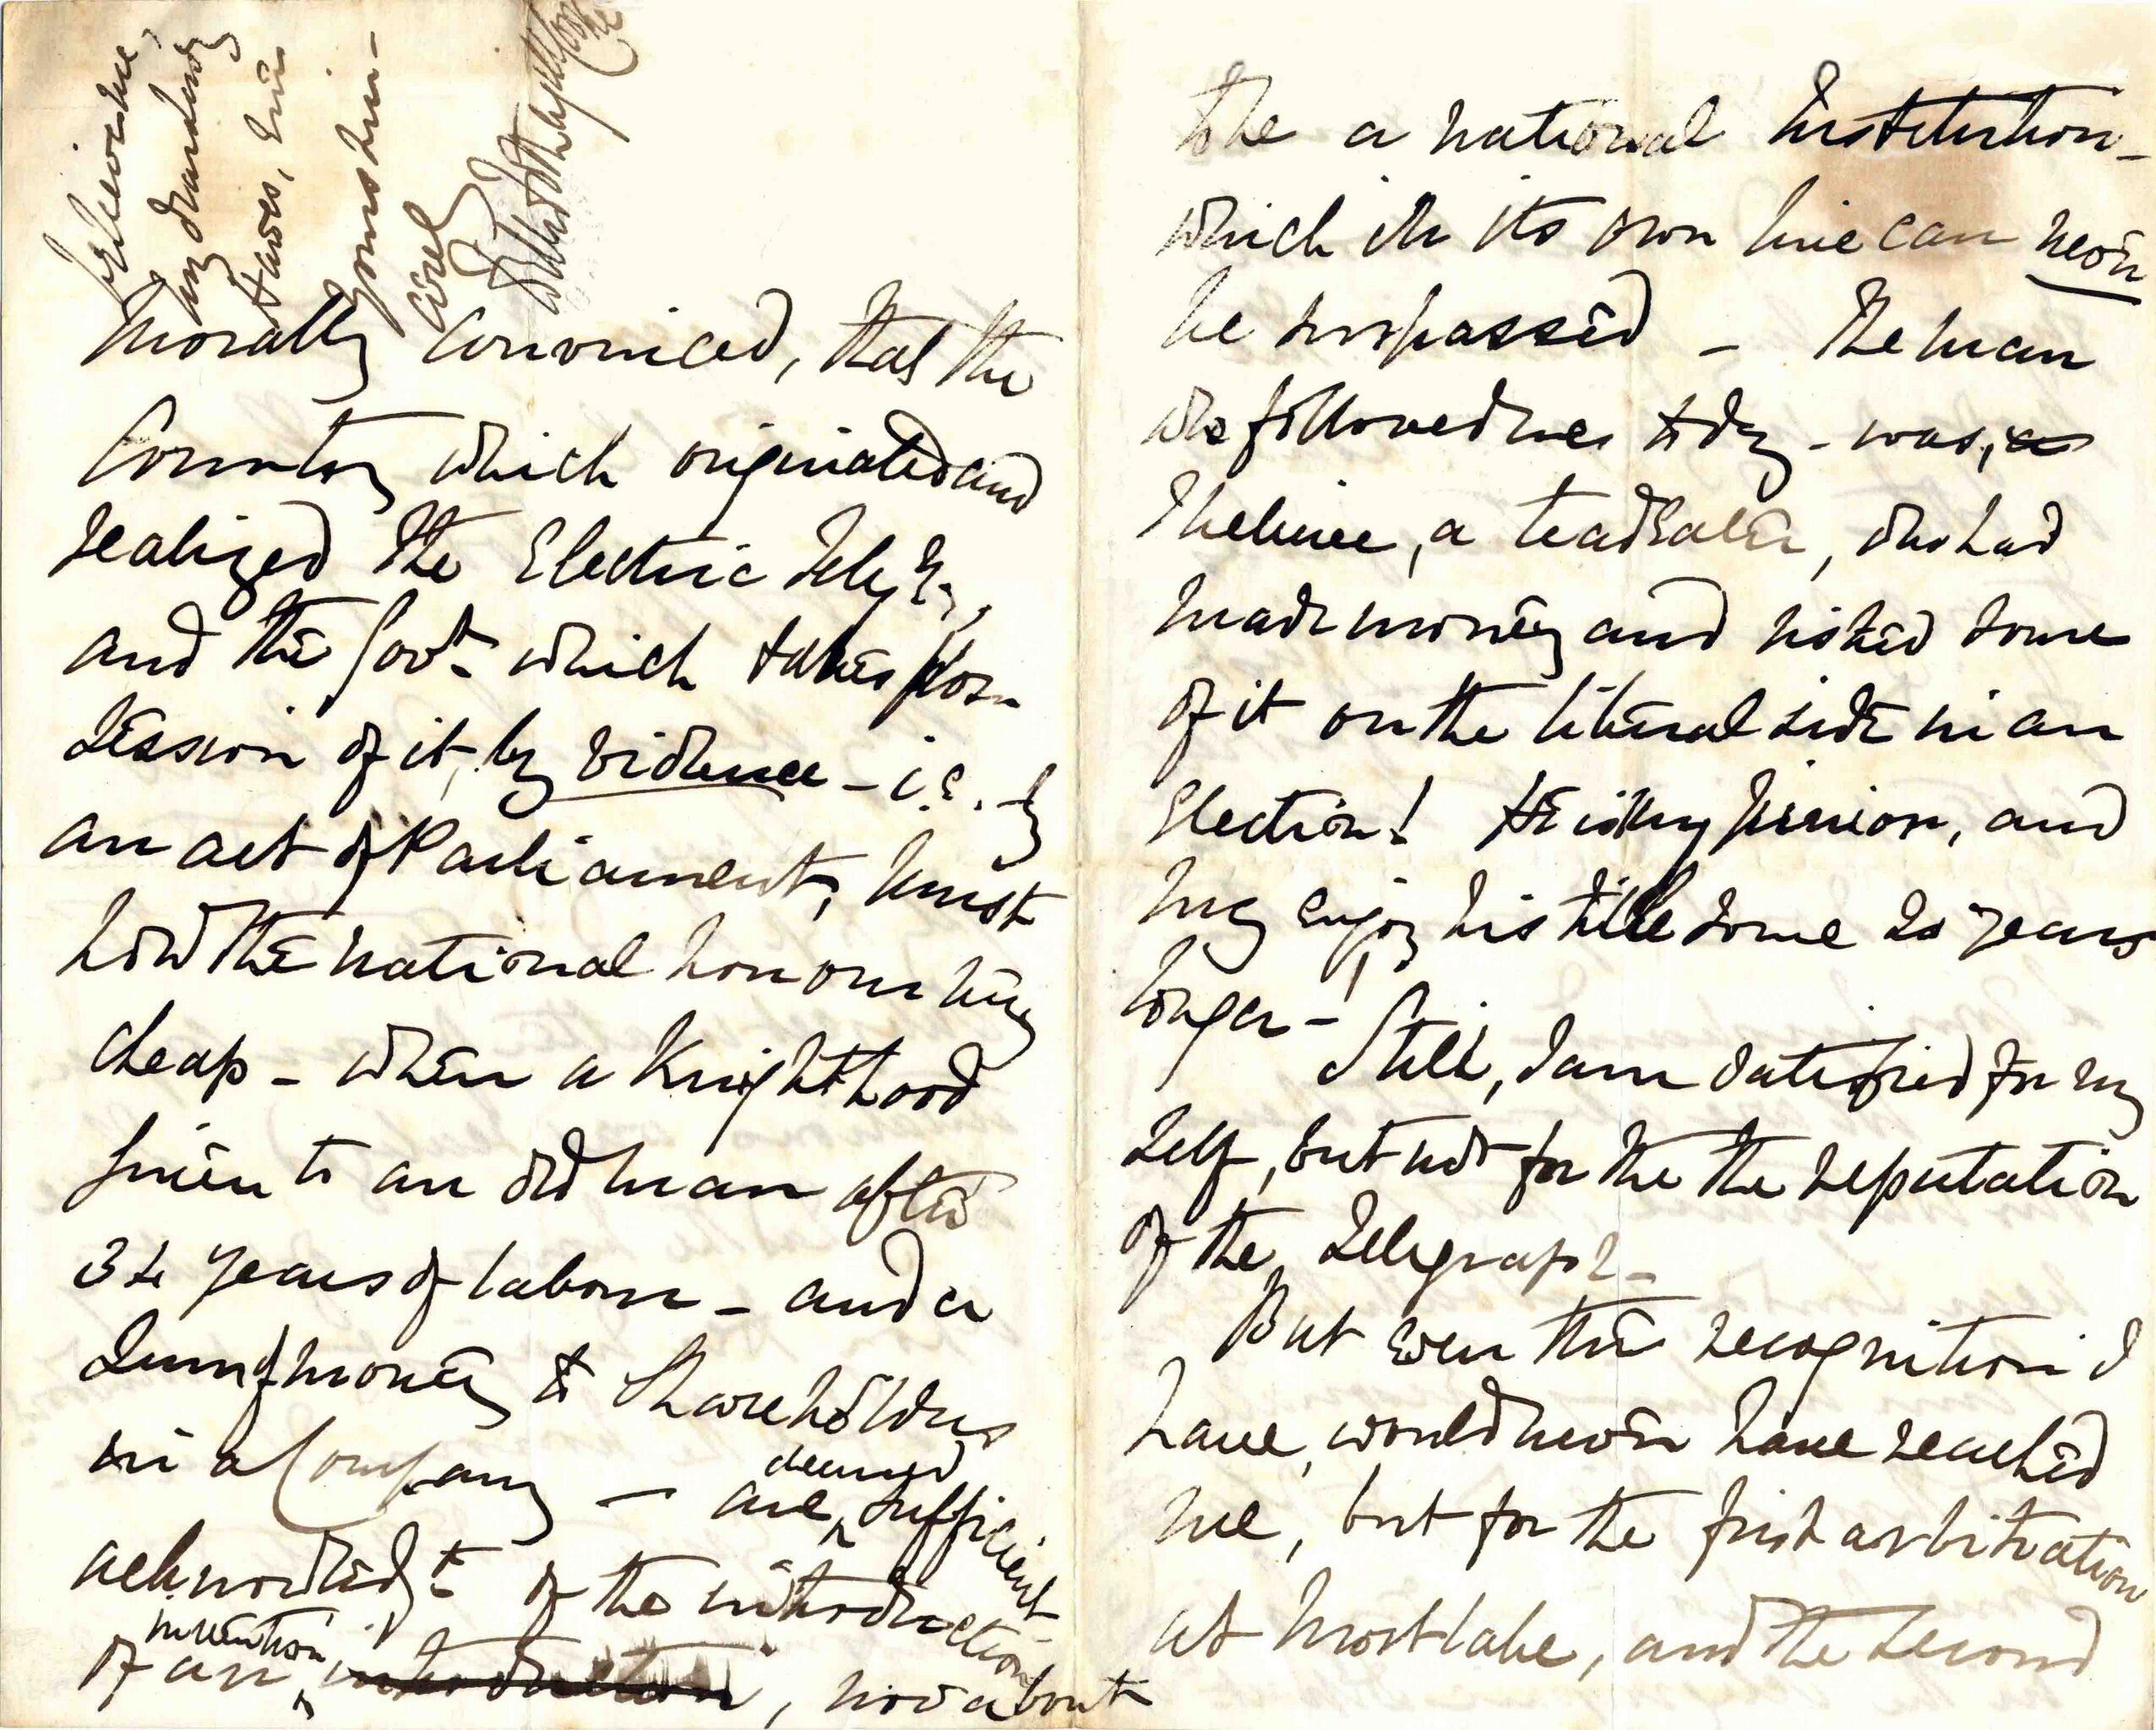 morally convinced, that the
Country which originated and
realized the Electric Telegh,
and the Govt which takes pos-
session of it, by violence - i.e. by
an act of Parliament, must
hold the national honour very
cheap - when a Knighthood
given to an old man after
34 years of labour - and a
sum of money to Shareholders
in a Company - are deemed sufficient
acknowledgt of the introduction
of an invention introduction, now about
to be a national Institution -
which in its own line can never
be surpassed - The man
who followed me to day - was, as
I believe, a tea dealer, who had
made money and risked some
of it on the liberal side in an
Election! He is my junior, and
may enjoy his title some 20 years
longer - !
Still, I am satisfied for my
self, but not for the the reputation
of the Telegraph -
But even the recognition I
have, would never have reached
me, but for the first arbitration
at Mortlake, and the second
my dear Lady
Hawes, Ever
Yours sin-
cerely